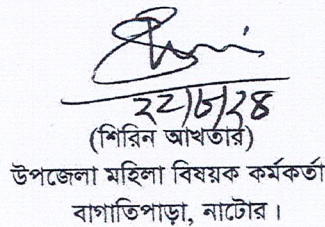 ২২/৮/২৪
(শিরিন আখতার)
উপজেলা মহিলা বিষয়ক কর্মকর্তা
বাগাতিপাড়া, নাটোর।